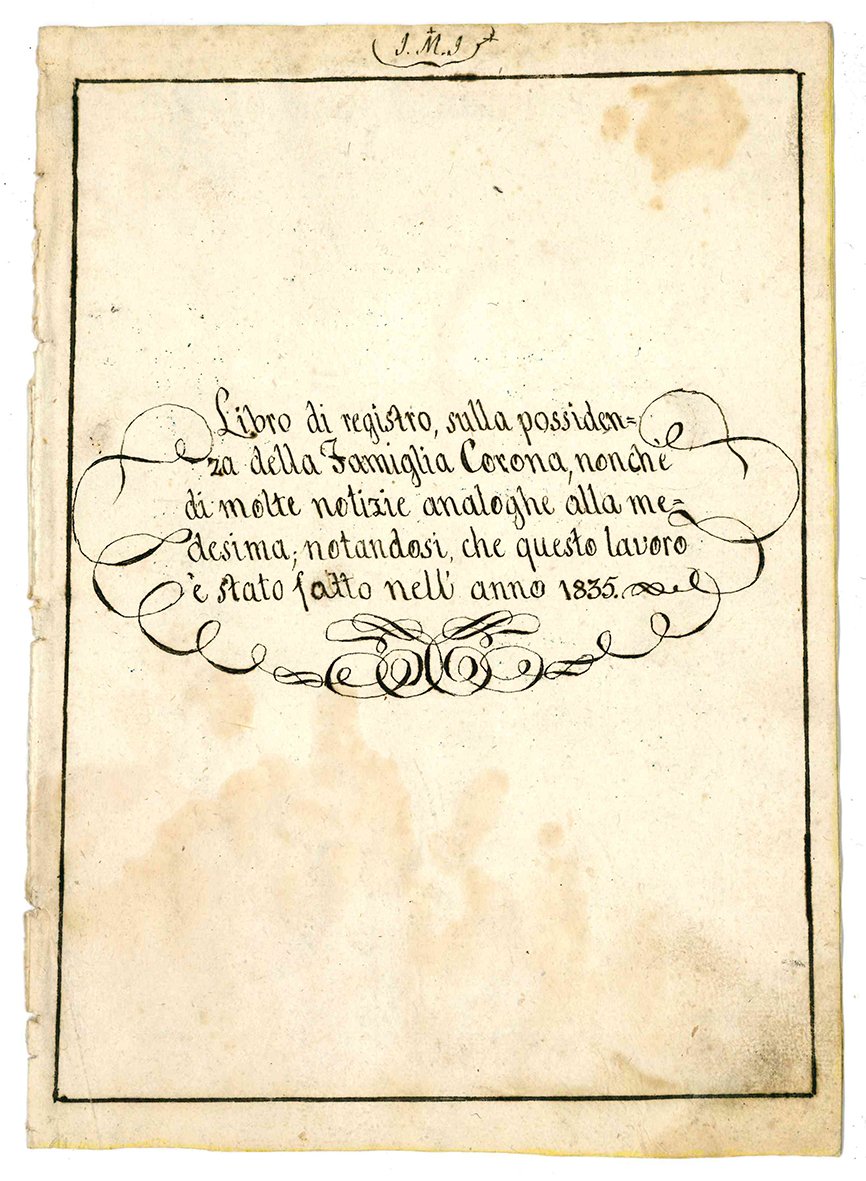 J. M. J
Libro di registro, sulla possiden=
za della Famiglia Corona, nonchè
di molte notizie analoghe alla me=
desima; notandosi, che questo lavoro
è stato fatto nell' anno 1835.